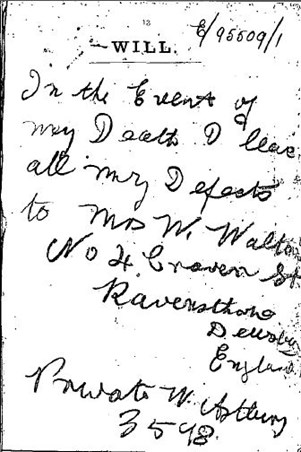 13
E/95509/1
WILL.
In the Event of
my Death I leav
all my Defects
to Mrs W. Walto
No 4. Craven St
Ravensthorp
Dewsby
England
Private W. Astbury
3598.